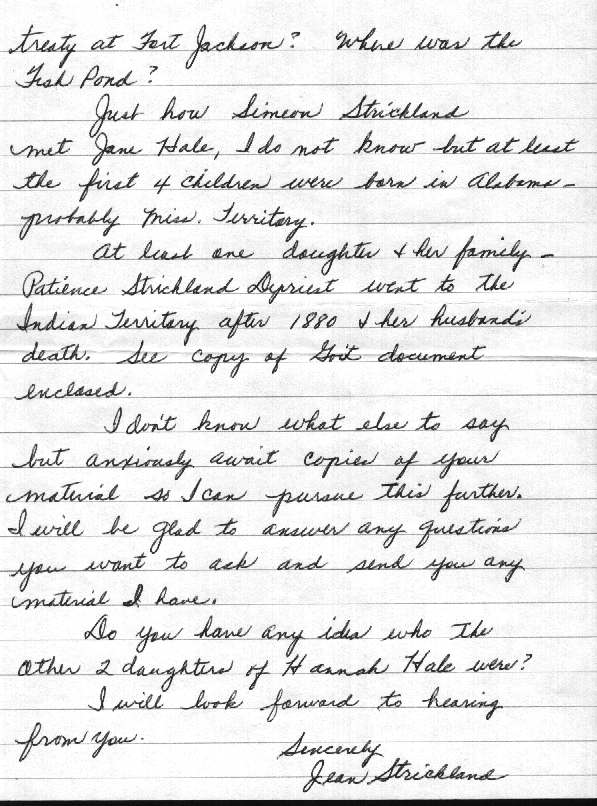 treaty at Fort Jackson? Where was the
Fish Pond?
Just how Simeon Strickland
met Jane Hale, I do not know but at least
the first 4 children were born in Alabama -
probably Miss. Territory.
At least one daughter & her family -
Patience Strickland Depriest went to the
Indian Territory after 1880 & her husband's
death. See copy of Gov't document
enclosed.
I don't know what else to say
but anxiously await copies of your
material so I can pursue this further.
I will be glad to answer any questions
you want to ask and send you any
material I have.
Do you have any idea who the
other 2 daughters of Hannah Hale were?
I will look forward to hearing
from you.
Sincerely
Jean Strickland